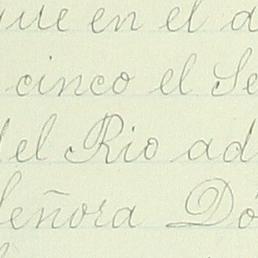 que en el d
cinco el Se
del Rio ad
Señora Dó